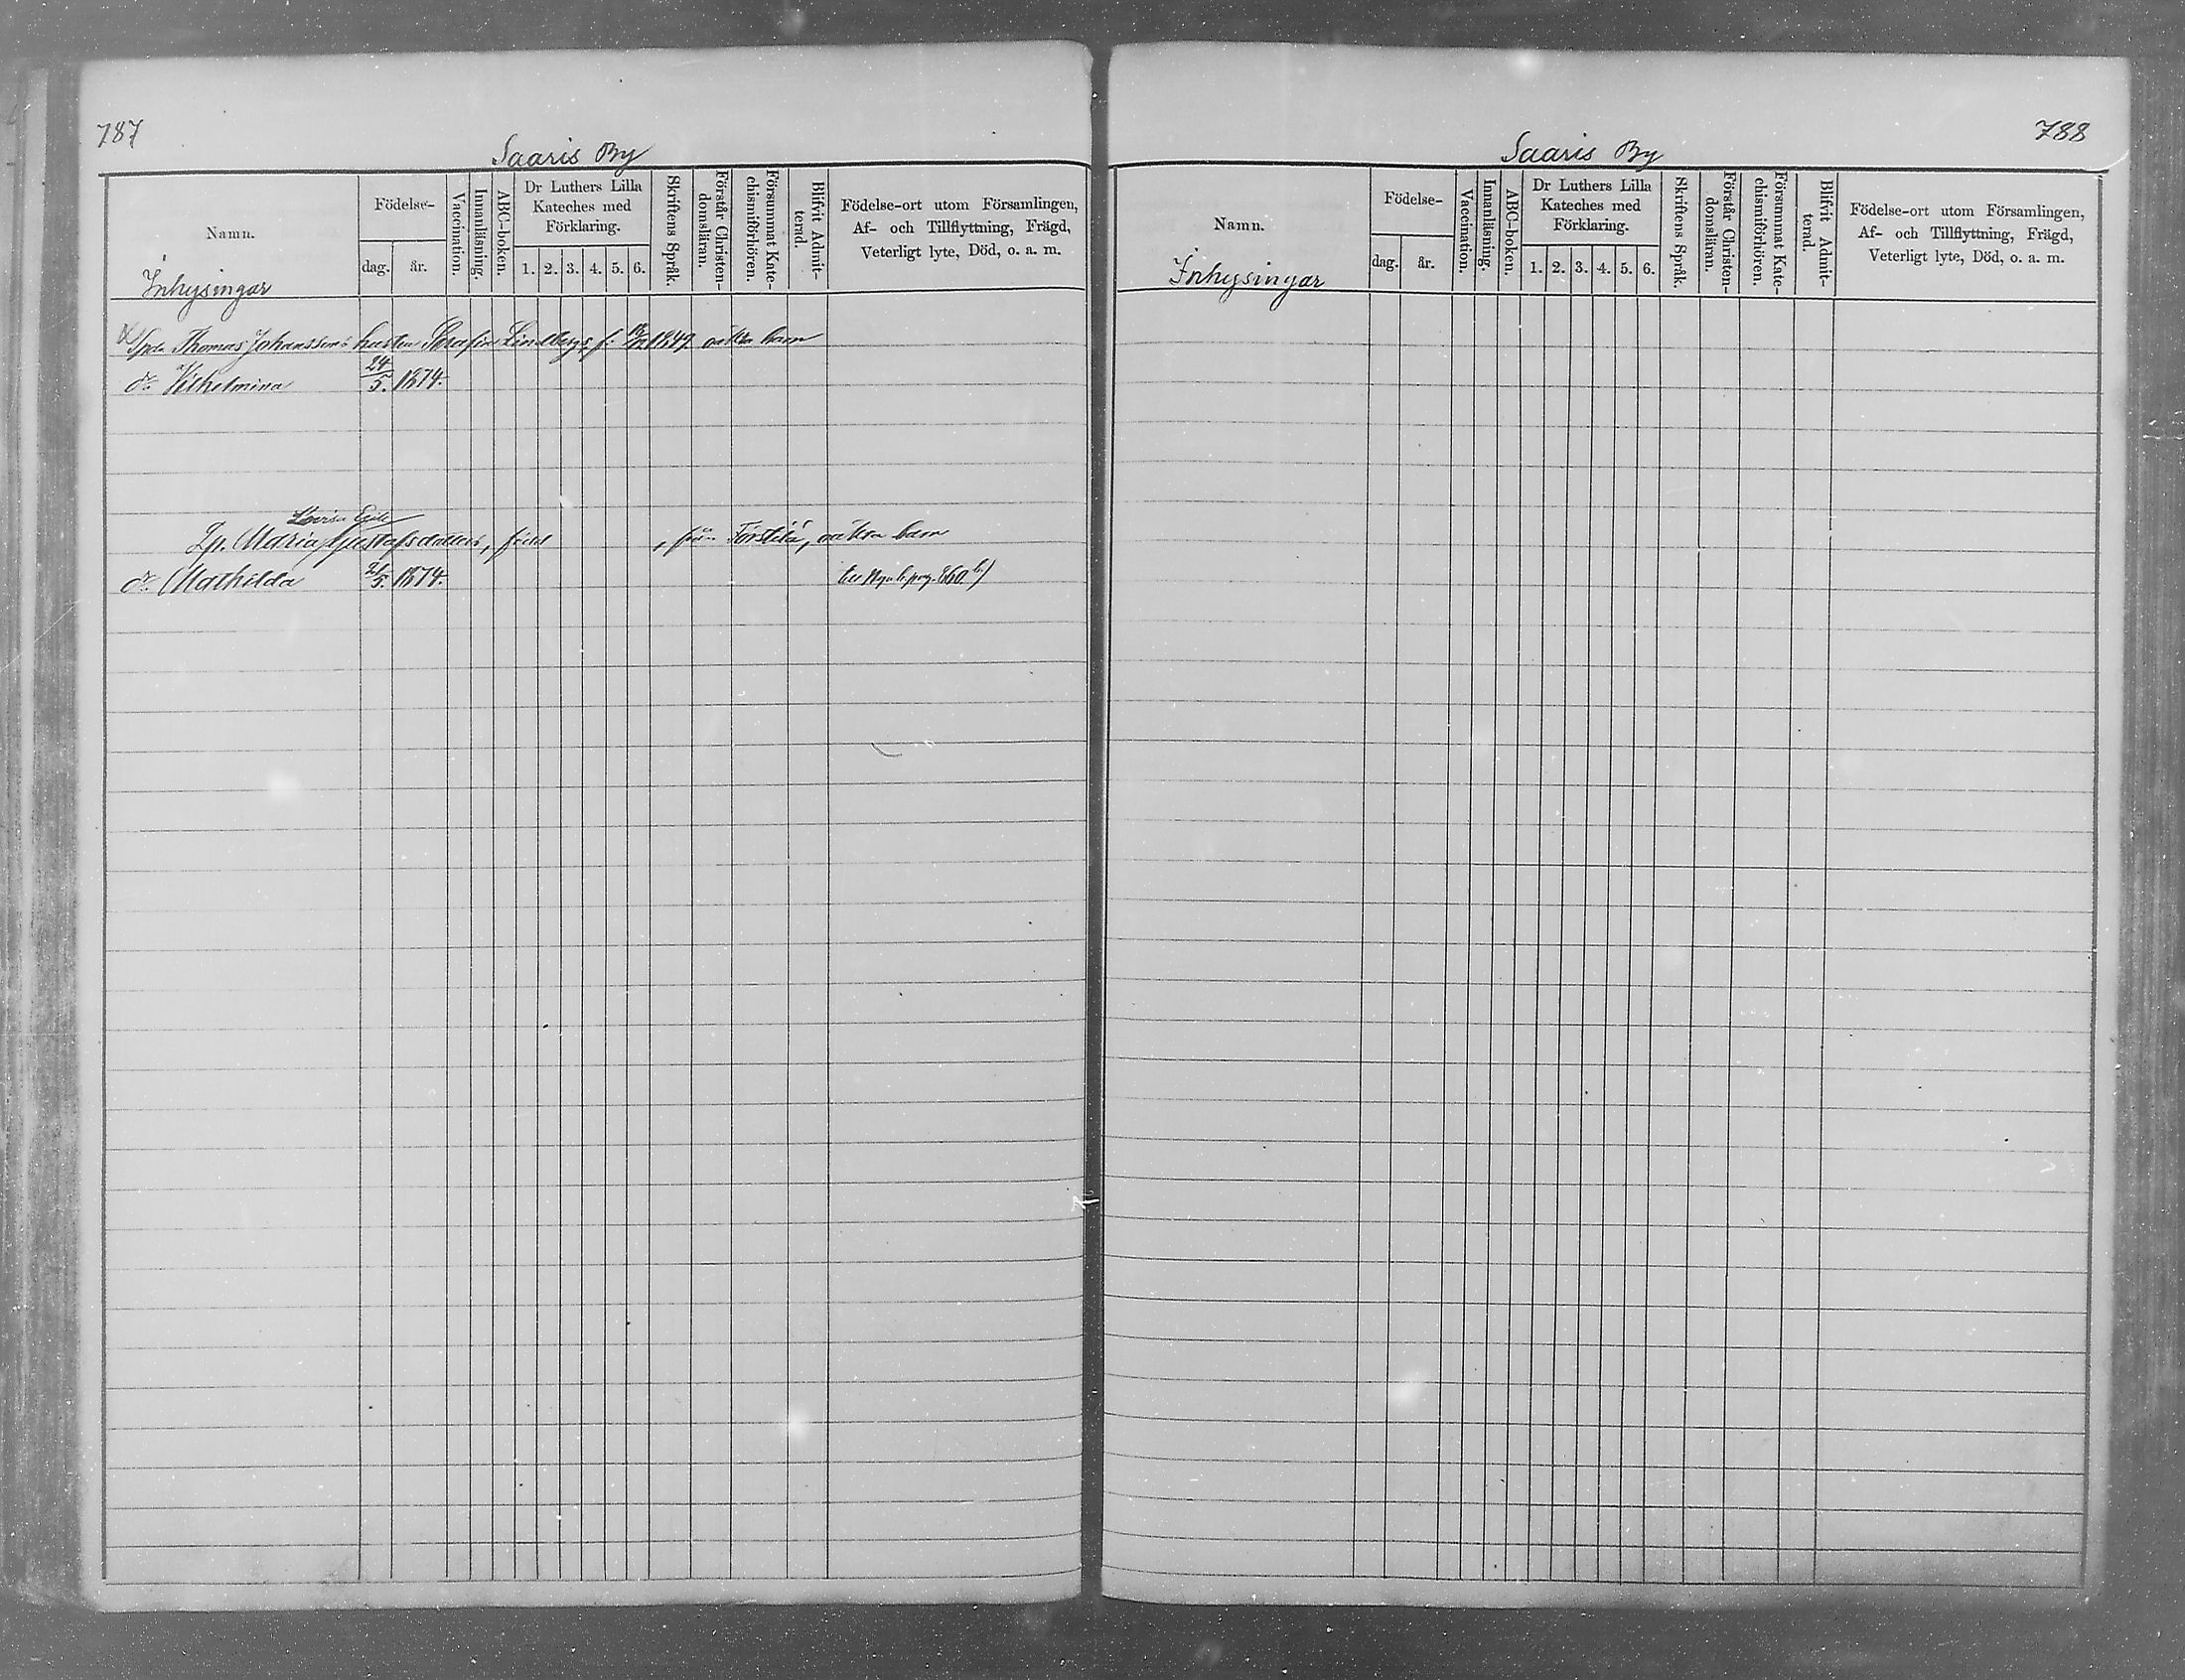 787
Saaris By
Namn.
Inhysingar
Födelse-
dag. år.
Vaccination.
Innanläsning.
ABC-boken.
Dr Luthers Lilla
Kateches med
Förklaring.
1. 2. 3. 4. 5. 6.
Skriftens Språk.
Förstår Christen-
domsläran.
Försummat Kate-
chismiförhören.
Blifvit Admit-
terad.
Födelse-ort utom Församlingen,
Af- och Tillflyttning, Frägd,
Veterligt lyte, Död, o. a. m.
Thomas Johanssons hustru Serafina Lindbergs, f. 1849 oäkta barn
dr. Vilhelmina 24/5. 1874.
Lovisa
Maria Gustafsdotters, född , från oäkta barn
dr. Mathilda 21/5. 1874. pag. 860
788
Saaris By
Namn.
Inhysingar
Födelse-
dag. år.
Vaccination.
Innanläsning.
ABC-boken.
Dr Luthers Lilla
Kateches med
Förklaring.
1. 2. 3. 4. 5. 6.
Skriftens Språk.
Förstår Christen-
domsläran.
Försummat Kate-
chismiförhören.
Blifvit Admit-
terad.
Födelse-ort utom Församlingen,
Af- och Tillflyttning, Frägd,
Veterligt lyte, Död, o. a. m.